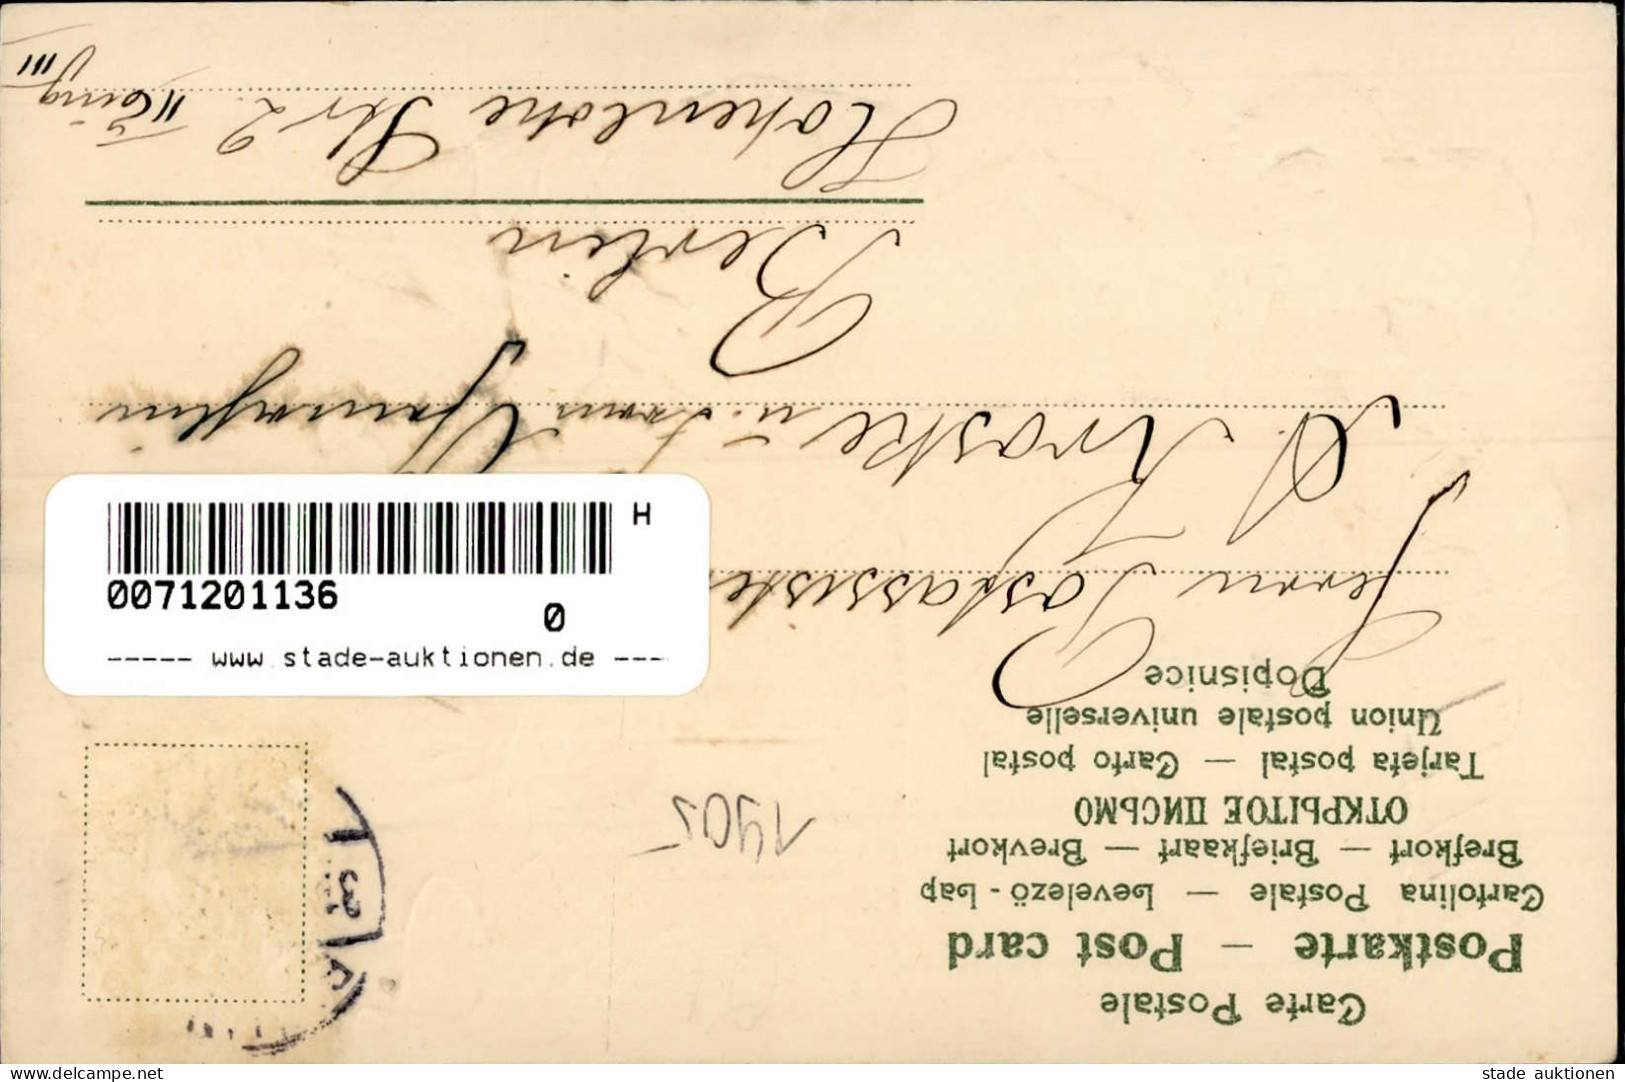 Carte Postale
Postkarte — Post card
Cartolina Postale — Levelező-Lap
Brefkort — Briefkaart — Brevkort
ОТКРЫТОЕ ПИСЬМО
Tarjeta postal — Carto postal
Union postale universelle
Dopisnice
1905
Herrn Postassiste
A. Kraske u. Frau
Berlin
Hohenlohe Str 2
III
H
0071201136
0
----- www.stade-auktionen.de ----
delcampe.net
stade auktionen